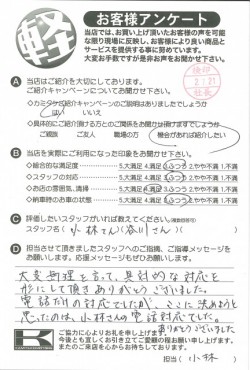 軽
お客様アンケート
当店では、お買い上げ頂いたお客様の声を可
な限り現場に反映し、お客様により良い商品と
サービスを提供する事に努めています。
大変お手数ですが是非お声をお聞かせ下さい。
A 当店はご紹介を大切にしております。
ご紹介キャンペーンについてお聞かせ下さい。
◇カミタケご紹介キャンペーンのご説明はありましたでしょうか
はい いいえ
◇具体的にご紹介頂ける方とのご関係をお聞かせ頂けますでしょうか
ご親族 ご友人 職場の方 機会があれば紹介したい
B 当店を実際にご利用になった印象をお聞かせ下さい。
◇総合的な満足度 5.大満足 4.満足 3.ふつう 2.やや不満 1.不満
◇スタッフの対応 5.大満足 4.満足 3.ふつう 2.やや不満 1.不満
◇お店の雰囲気、清掃 5.大満足 4.満足 3.ふつう 2.やや不満 1.不満
◇納車時のお車の状態 5.大満足 4.満足 3.ふつう 2.やや不満 1.不満
C 評価したいスタッフがいれば教えてください。
スタッフ名( 小林さん )( 谷川さん )( )
D 担当させて頂きましたスタッフへのご指摘、ご指導メッセージを
お願いします。応援メッセージもぜひお願いします。
大変無理を言って、具体的な対応を
形にして頂きありがとうございました。
電話だけの対応でしたが、ここに決めようと
思ったのは、小林さんの電話対応でした。
ありがとうございました
K
ご協力に心よりお礼を申し上げます。
今後とも宜しくお引き立てご愛顧の程お願い申し上げます。
またのご来店を心からお待ちしております。
担当( 小林 )